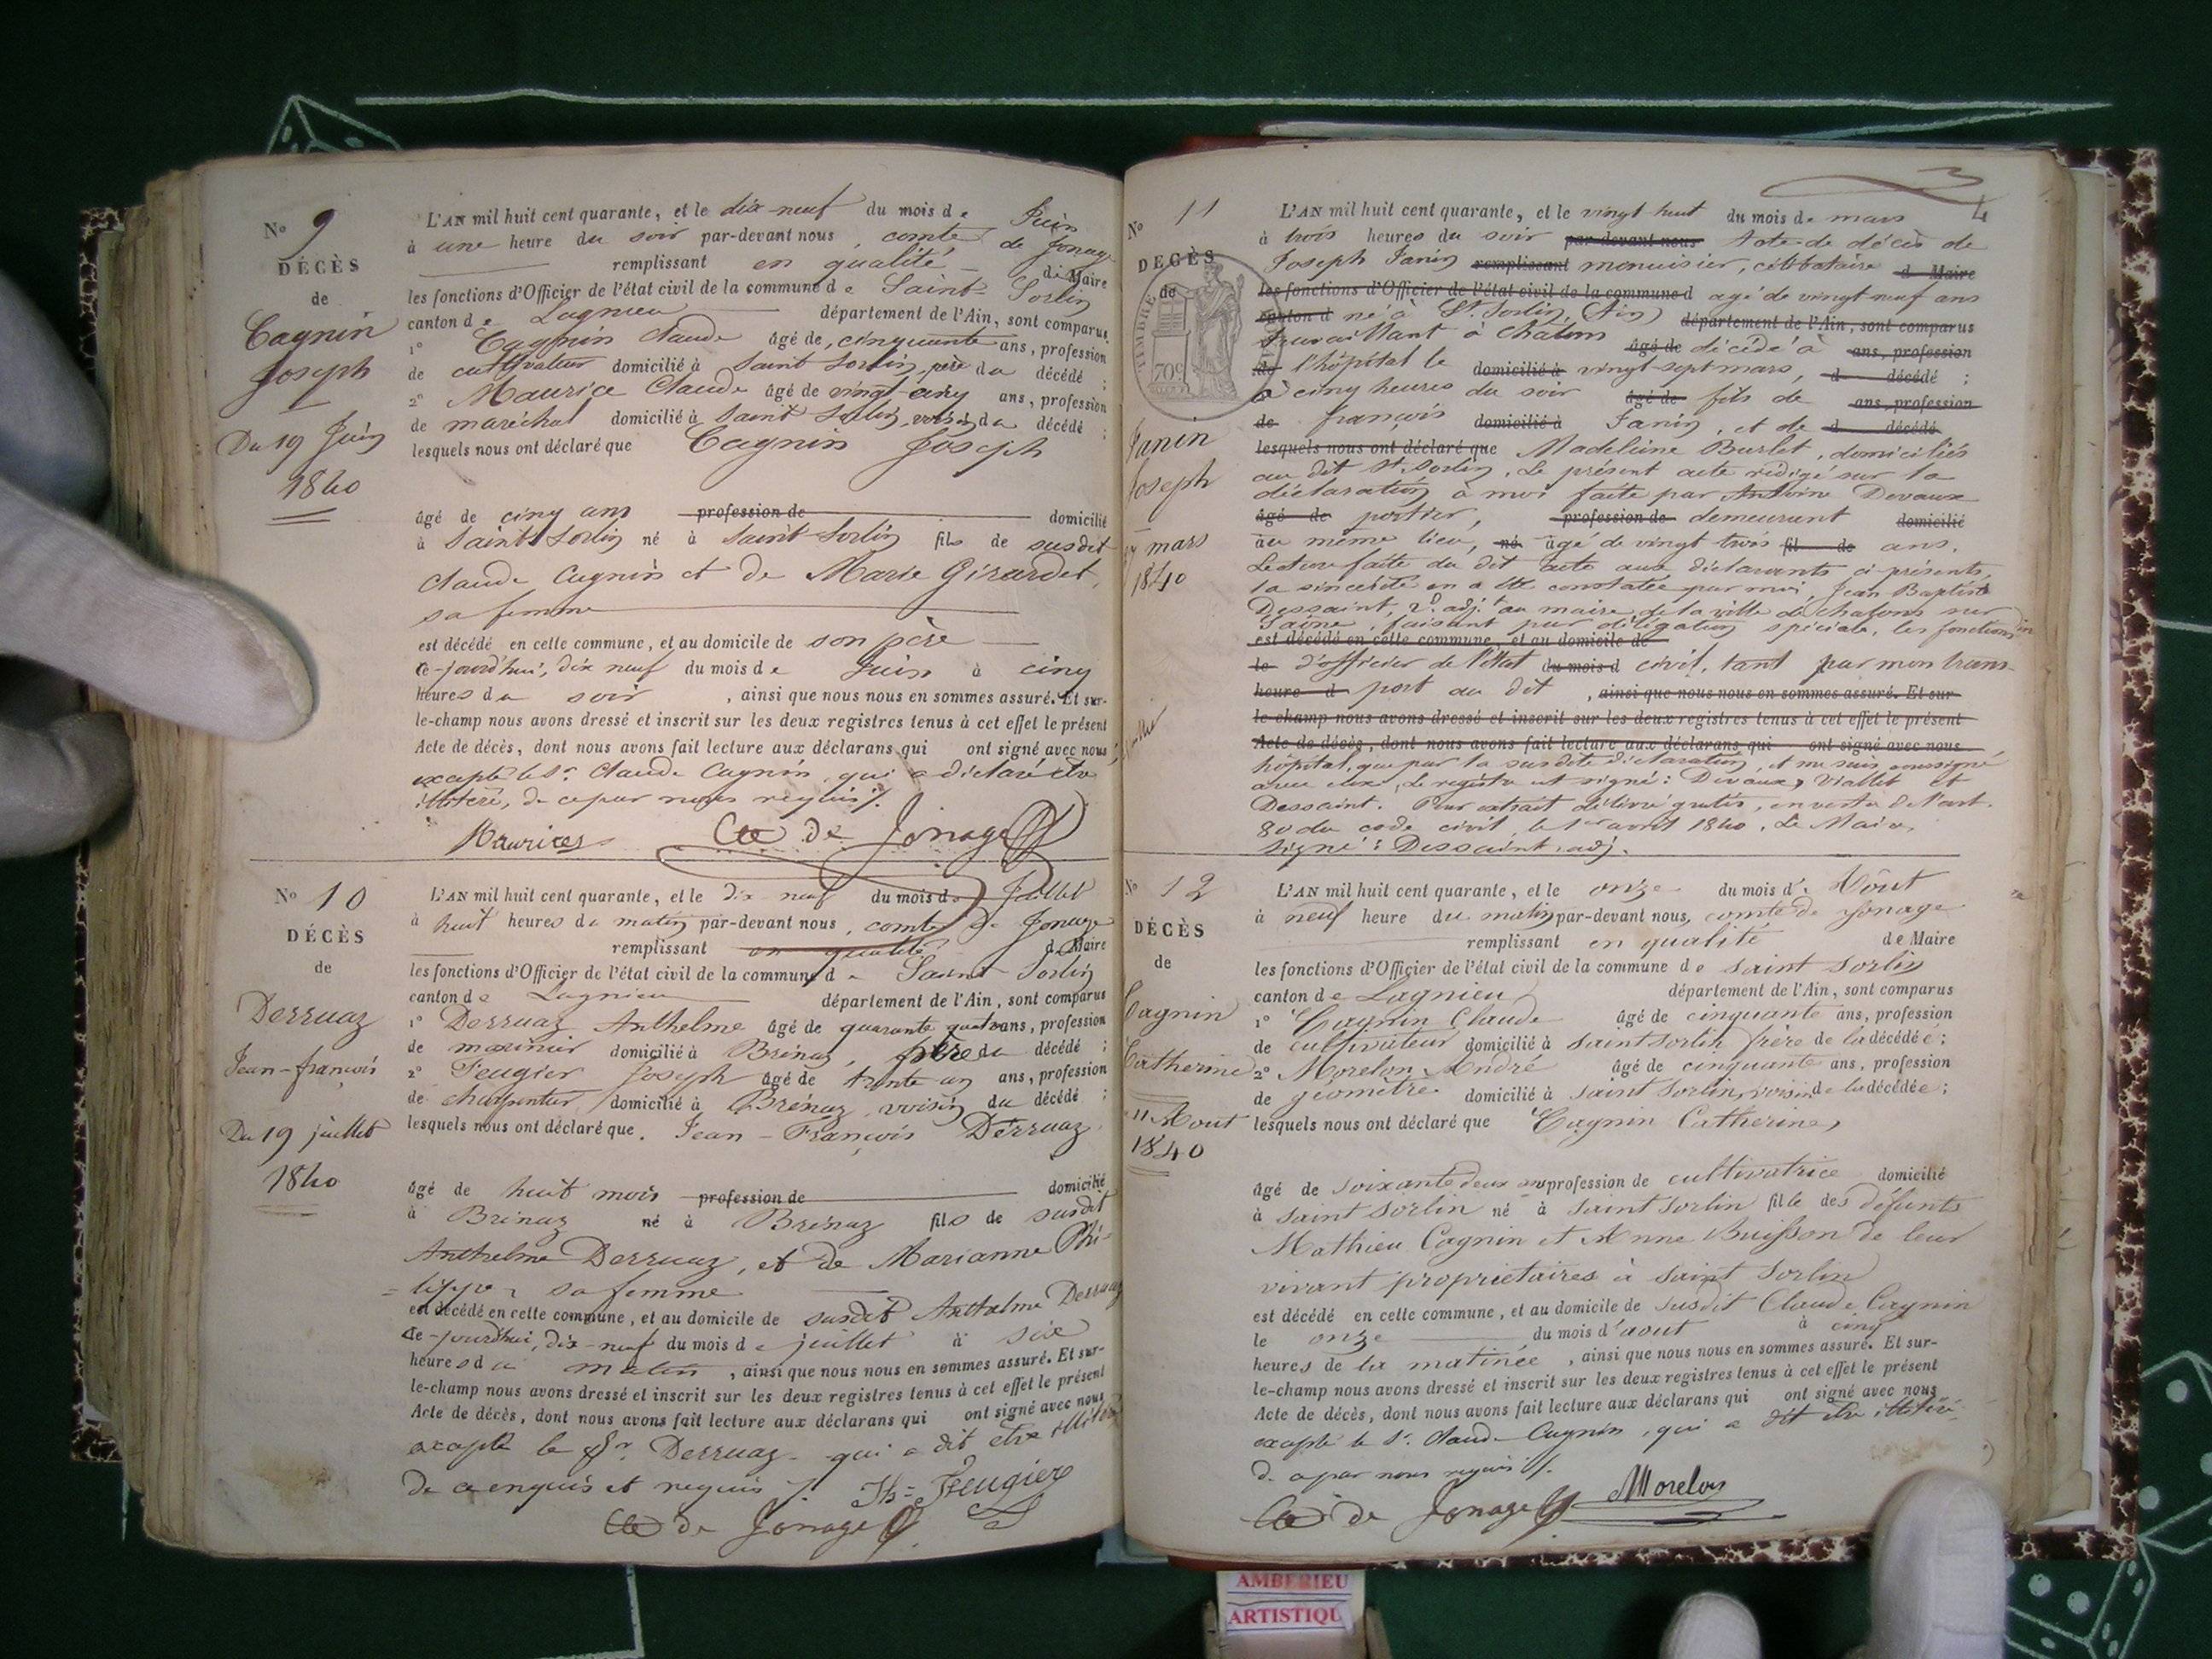 N° 9
DÉCÈS
de
Cagnin
Joseph
Du 19 Juin
1840
L'AN mil huit cent quarante, et le dix-neuf du mois de Juin
à une heure du soir par-devant nous, comte de Jonage
remplissant en qualité de Maire
les fonctions d'Officier de l'état civil de la commune de Saint-Sorlin
canton de Lagnieu département de l'Ain, sont comparus
1° Cagnin Claude âgé de cinquante ans, profession
de cultivateur domicilié à Saint Sorlin, père du décédé ;
2° Maurice Claude âgé de vingt-cinq ans, profession
de maréchal domicilié à Saint Sorlin, voisin du décédé ;
lesquels nous ont déclaré que Cagnin Joseph
âgé de cinq ans profession de domicilié
à Saint Sorlin né à Saint-Sorlin fils de susdit
Claude Cagnin et de Marie Girardet,
sa femme
est décédé en cette commune, et au domicile de son père
ce-jourd'hui, dix neuf du mois de Juin à cinq
heures du soir, ainsi que nous nous en sommes assuré. Et sur-
le-champ nous avons dressé et inscrit sur les deux registres tenus à cet effet le présent
Acte de décès, dont nous avons fait lecture aux déclarans qui ont signé avec nous,
excepté le Sr. Claude Cagnin, qui a déclaré être
illitéré, de ce par nous requis ./.
Maurices Cte de Jonage
N° 10
DÉCÈS
de
Derruaz
Jean-françois
Du 19 juillet
1840
L'AN mil huit cent quarante, et le dix neuf du mois de Juillet
à huit heures du matin par-devant nous, comte de Jonage
remplissant en qualité de Maire
les fonctions d'Officier de l'état civil de la commune de Saint-Sorlin
canton de Lagnieu département de l'Ain, sont comparus
1° Derruaz Anthelme âgé de quarante quatre ans, profession
de marinier domicilié à Brénaz, père du décédé ;
2° Feugier Joseph âgé de trente un ans, profession
de charpentier domicilié à Brénaz, voisin du décédé ;
lesquels nous ont déclaré que Jean-François Derruaz,
âgé de huit mois profession de domicilié
à Brénaz né à Brénaz fils de susdit
Anthelme Derruaz, et de Marianne Phi-
= lippe, sa femme
est décédé en cette commune, et au domicile de susdit Anthelme Derruaz
ce-jourd'hui, dix-neuf du mois de juillet à six
heures du matin, ainsi que nous nous en sommes assuré. Et sur-
le-champ nous avons dressé et inscrit sur les deux registres tenus à cet effet le présent
Acte de décès, dont nous avons fait lecture aux déclarans qui ont signé avec nous,
excepté le Sr. Derruaz qui a dit être illitéré
de ce enquis et requis ./. Jh = Feugier
Cte de Jonage
4
N° 11
DECÈS
de
TIMBRE
70c
Janin
Joseph
27 mars
1840
L'AN mil huit cent quarante, et le vingt huit du mois de mars
à trois heures du soir par-devant nous Acte de décès de
Joseph Janin remplissant menuisier, célibataire d Maire
les fonctions d'Officier de l'état civil de la commune d agé de vingt neuf ans
canton d né à St. Sorlin, (Ain) département de l'Ain, sont comparus
travaillant à Châlons âgé de décédé à ans, profession
de l'hôpital le domicilié à vingt sept mars, d décédé ;
à cinq heures du soir âgé de fils de ans, profession
de françois domicilié à Janin, et de d décédé
lesquels nous ont déclaré que Madeleine Burlet, domiciliés
au dit St. Sorlin. Le présent acte rédigé sur la
déclaration à moi faite par Antoine Devaux
âgé de portier, profession de demeurant domicilié
au même lieu, né âgé de vingt trois fil de ans.
Lecture faite du dit acte aux déclarants ci-présents,
la sincérité en a été constatée par moi, Jean Baptiste
Dessaint, 2d. adjt. au maire de la ville de Chalons sur
Saône, faisant par délégation spéciale, les fonctions
est décédé en cette commune, et au domicile de
le d'officier de l'état du mois d civil, tant par mon trans-
heure d port au dit , ainsi que nous nous en sommes assuré. Et sur-
le champ nous avons dressé et inscrit sur les deux registres tenus à cet effet le présent
Acte de décès, dont nous avons fait lecture aux déclarans qui ont signé avec nous
hôpital, que par la susdite déclaration, et me suis soussigné
avec eux, Le registre est signé : Devaux, Viallet et
Dessaint. Pour extrait délivré gratis, en vertu de l'art.
80 du code civil, le 1er avril 1840, Le Maire,
signé : Dessaint, adj.
N° 12
DÉCÈS
de
Cagnin
Catherine
11 Aout
1840
L'AN mil huit cent quarante, et le onze du mois d' Aôut
à neuf heure du matin par-devant nous, comte de Jonage
remplissant en qualité de Maire
les fonctions d'Officier de l'état civil de la commune de Saint Sorlin
canton de Lagnieu, département de l'Ain, sont comparus
1° Cagnin Claude âgé de cinquante ans, profession
de cultivateur domicilié à Saint Sorlin frère de la décédée ;
2° Morelon André âgé de cinquante ans, profession
de géomètre domicilié à Saint Sorlin, voisin de la décédée ;
lesquels nous ont déclaré que Cagnin Catherine,
âgé de soixante deux ans profession de cultivatrice domicilié
à Saint Sorlin né à Saint Sorlin fille des défunts
Mathieu Cagnin et Anne Buisson de leur
vivant propriétaires à Saint Sorlin
est décédé en cette commune, et au domicile de susdit Claude Cagnin
le onze du mois d'aout à cinq
heures de la matinée, ainsi que nous nous en sommes assuré. Et sur-
le-champ nous avons dressé et inscrit sur les deux registres tenus à cet effet le présent
Acte de décès, dont nous avons fait lecture aux déclarans qui ont signé avec nous
excepté le Sr. Claude Cagnin, qui a dit être illitéré
de ce par nous requis ./.
Cte de Jonage Morelon
AMBERIEU
ARTISTIQU